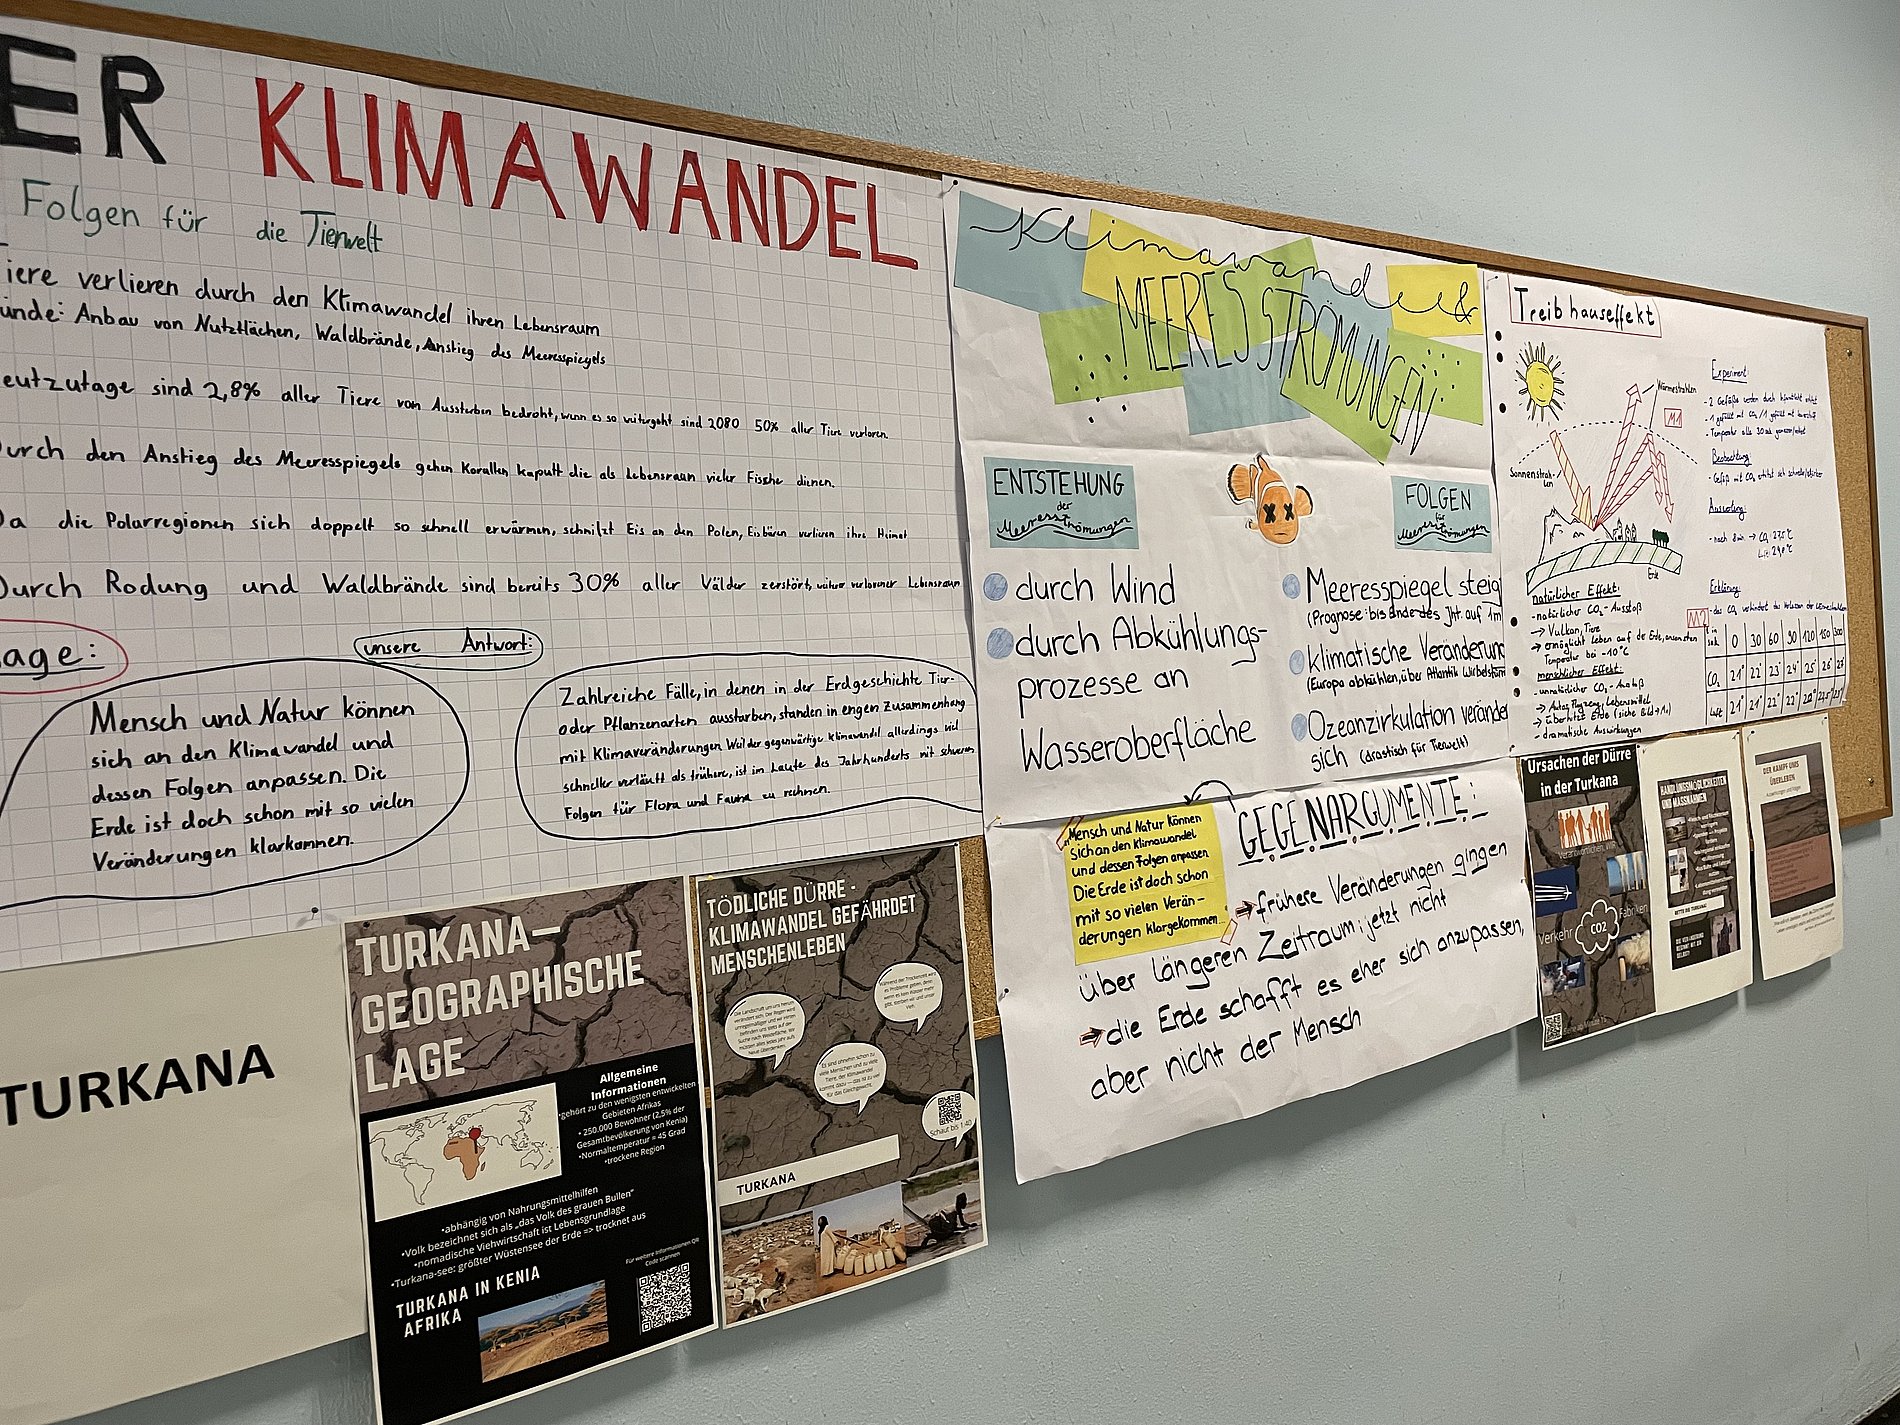 ER KLIMAWANDEL
Folgen für die Tierwelt
iere verlieren durch den Klimawandel ihren Lebensraum
ünde: Anbau von Nutzflächen, Waldbrände, Anstieg des Meeresspiegels
eutzutage sind 2,8% aller Tiere vom Aussterben bedroht, wenn es so weitergeht sind 2080 50% aller Tiere verloren.
Durch den Anstieg des Meeresspiegels gehen Korallen kaputt die als Lebensraum vieler Fische dienen.
Da die Polarregionen sich doppelt so schnell erwärmen, schmilzt Eis an den Polen, Eisbären verlieren ihre Heimat
Durch Rodung und Waldbrände sind bereits 30% aller Wälder zerstört, verlorener Lebensraum
age:
Mensch und Natur können
sich an den Klimawandel und
dessen Folgen anpassen. Die
Erde ist doch schon mit so vielen
Veränderungen klarkommen.
unsere Antwort:
Zahlreiche Fälle, in denen in der Erdgeschichte Tier-
oder Pflanzenarten ausstarben, standen in engem Zusammenhang
mit Klimaveränderungen. Weil der gegenwärtige Klimawandel allerdings viel
schneller verläuft als frühere, ist im Laufe des Jahrhunderts mit schweren
Folgen für Flora und Fauna zu rechnen.
Klimawandel &
MEERESSTRÖMUNGEN
ENTSTEHUNG
der
Meeresströmungen
durch Wind
durch Abkühlungs-
prozesse an
Wasseroberfläche
FOLGEN
für
Meeresströmungen
Meeresspiegel steig
(Prognose: bis Ende des Jht. auf 1m
klimatische Veränderun
(Europa abkühlen, über Atlantik Wirbelstürm
Ozeanzirkulation verände
sich (drastisch für Tierwelt)
Mensch und Natur können
sich an den Klimawandel
und dessen Folgen anpassen
Die Erde ist doch schon
mit so vielen Verän-
derungen klargekommen...
GEGENARGUMENTE:
frühere Veränderungen gingen
über längeren Zeitraum; jetzt nicht
die Erde schafft es eher sich anzupassen,
aber nicht der Mensch
Treibhauseffekt
Wärmestrahlen
M1
Sonnenstrah-
len
Erde
natürlicher Effekt:
- natürlicher CO₂-Ausstoß
→ Vulkan, Tiere
→ ermöglicht Leben auf der Erde, ansonsten
Temperatur bei -10°C
menschlicher Effekt:
- unnatürlicher CO₂-Ausstoß
→ Autos, Flugzeug, Lebensmittel
→ überhitzte Erde (siehe Bild → M1)
- dramatische Auswirkungen
Experiment:
- Temperatur alle 30 sek
Beobachtung:
- Gefäß mit CO₂ erhitzt sich schneller/stärker
Auswertung:
Erklärung:
- das CO₂ verhindert das Verlassen der Wärmestrahlen
M2
0 30 60 90 120 150 300
CO₂ 21° 22° 23° 24° 25° 26° 28°
Luft 21° 21° 22° 22°
TURKANA
TURKANA—
GEOGRAPHISCHE
LAGE
Allgemeine
Informationen
•gehört zu den wenigsten entwickelten
Gebieten Afrikas
• 250.000 Bewohner (2,5% der
Gesamtbevölkerung von Kenia)
•Normaltemperatur = 45 Grad
•trockene Region
•abhängig von Nahrungsmittelhilfen
•Volk bezeichnet sich als „das Volk des grauen Bullen"
•nomadische Viehwirtschaft ist Lebensgrundlage
•Turkana-see: größter Wüstensee der Erde => trocknet aus
TURKANA IN KENIA
AFRIKA
Für weitere Informationen QR
Code scannen
TÖDLICHE DÜRRE -
KLIMAWANDEL GEFÄHRDET
MENSCHENLEBEN
Schaut bis 1:40
TURKANA
Ursachen der Dürre
in der Turkana
Verantwortlichen: WIR
Fabriken
Verkehr
CO2
HANDLUNGSMÖGLICHKEITEN
UND MASSNAHMEN
DER KAMPF UMS
ÜBERLEBEN